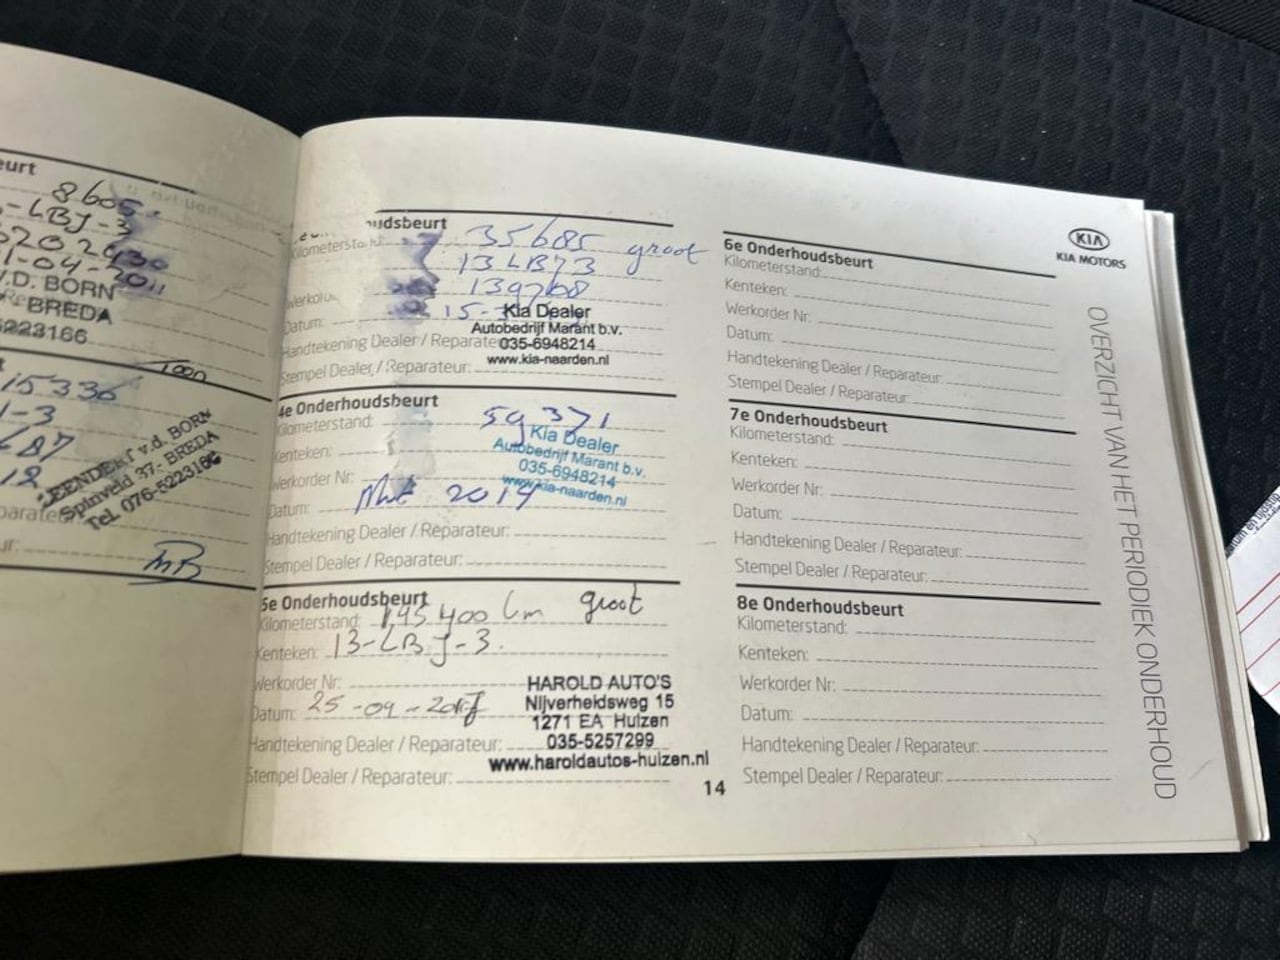 eurt
8605
-LBJ-3
-04-2011
V.D. BORN
BREDA
5223166
Toon
15336
1-3
LB7
12
LEENDERT v.d. BORN
Spinveld 37- BREDA
Tel. 076-5223166
ur:
MB
udsbeurt
Kilometerstand: 35685 groot
13LBJ3
139768
Datum: 15-
Kia Dealer
Autobedrijf Marant b.v.
Handtekening Dealer / Reparateur
035-6948214
www.kia-naarden.nl
Stempel Dealer / Reparateur:
4e Onderhoudsbeurt
Kilometerstand: 59371
Kia Dealer
Autobedrijf Marant b.v.
Kenteken:
035-6948214
Werkorder Nr:
www.kia-naarden.nl
Datum: 2014
Handtekening Dealer / Reparateur:
Stempel Dealer / Reparateur:
5e Onderhoudsbeurt groot
Kilometerstand: 195400 km
Kenteken: 13-LBJ-3.
Werkorder Nr:
HAROLD AUTO'S
Nijverheidsweg 15
Datum: 25-09-2017
1271 EA Huizen
Handtekening Dealer / Reparateur:
035-5257299
www.haroldautos-huizen.nl
Stempel Dealer / Reparateur:
14
6e Onderhoudsbeurt
Kilometerstand:
Kenteken:
Werkorder Nr:
Datum:
Handtekening Dealer / Reparateur:
Stempel Dealer / Reparateur:
7e Onderhoudsbeurt
Kilometerstand:
Kenteken:
Werkorder Nr:
Datum:
Handtekening Dealer / Reparateur:
Stempel Dealer / Reparateur:
8e Onderhoudsbeurt
Kilometerstand:
Kenteken:
Werkorder Nr:
Datum:
Handtekening Dealer / Reparateur:
Stempel Dealer / Reparateur:
KIA
KIA MOTORS
OVERZICHT VAN HET PERIODIEK ONDERHOUD